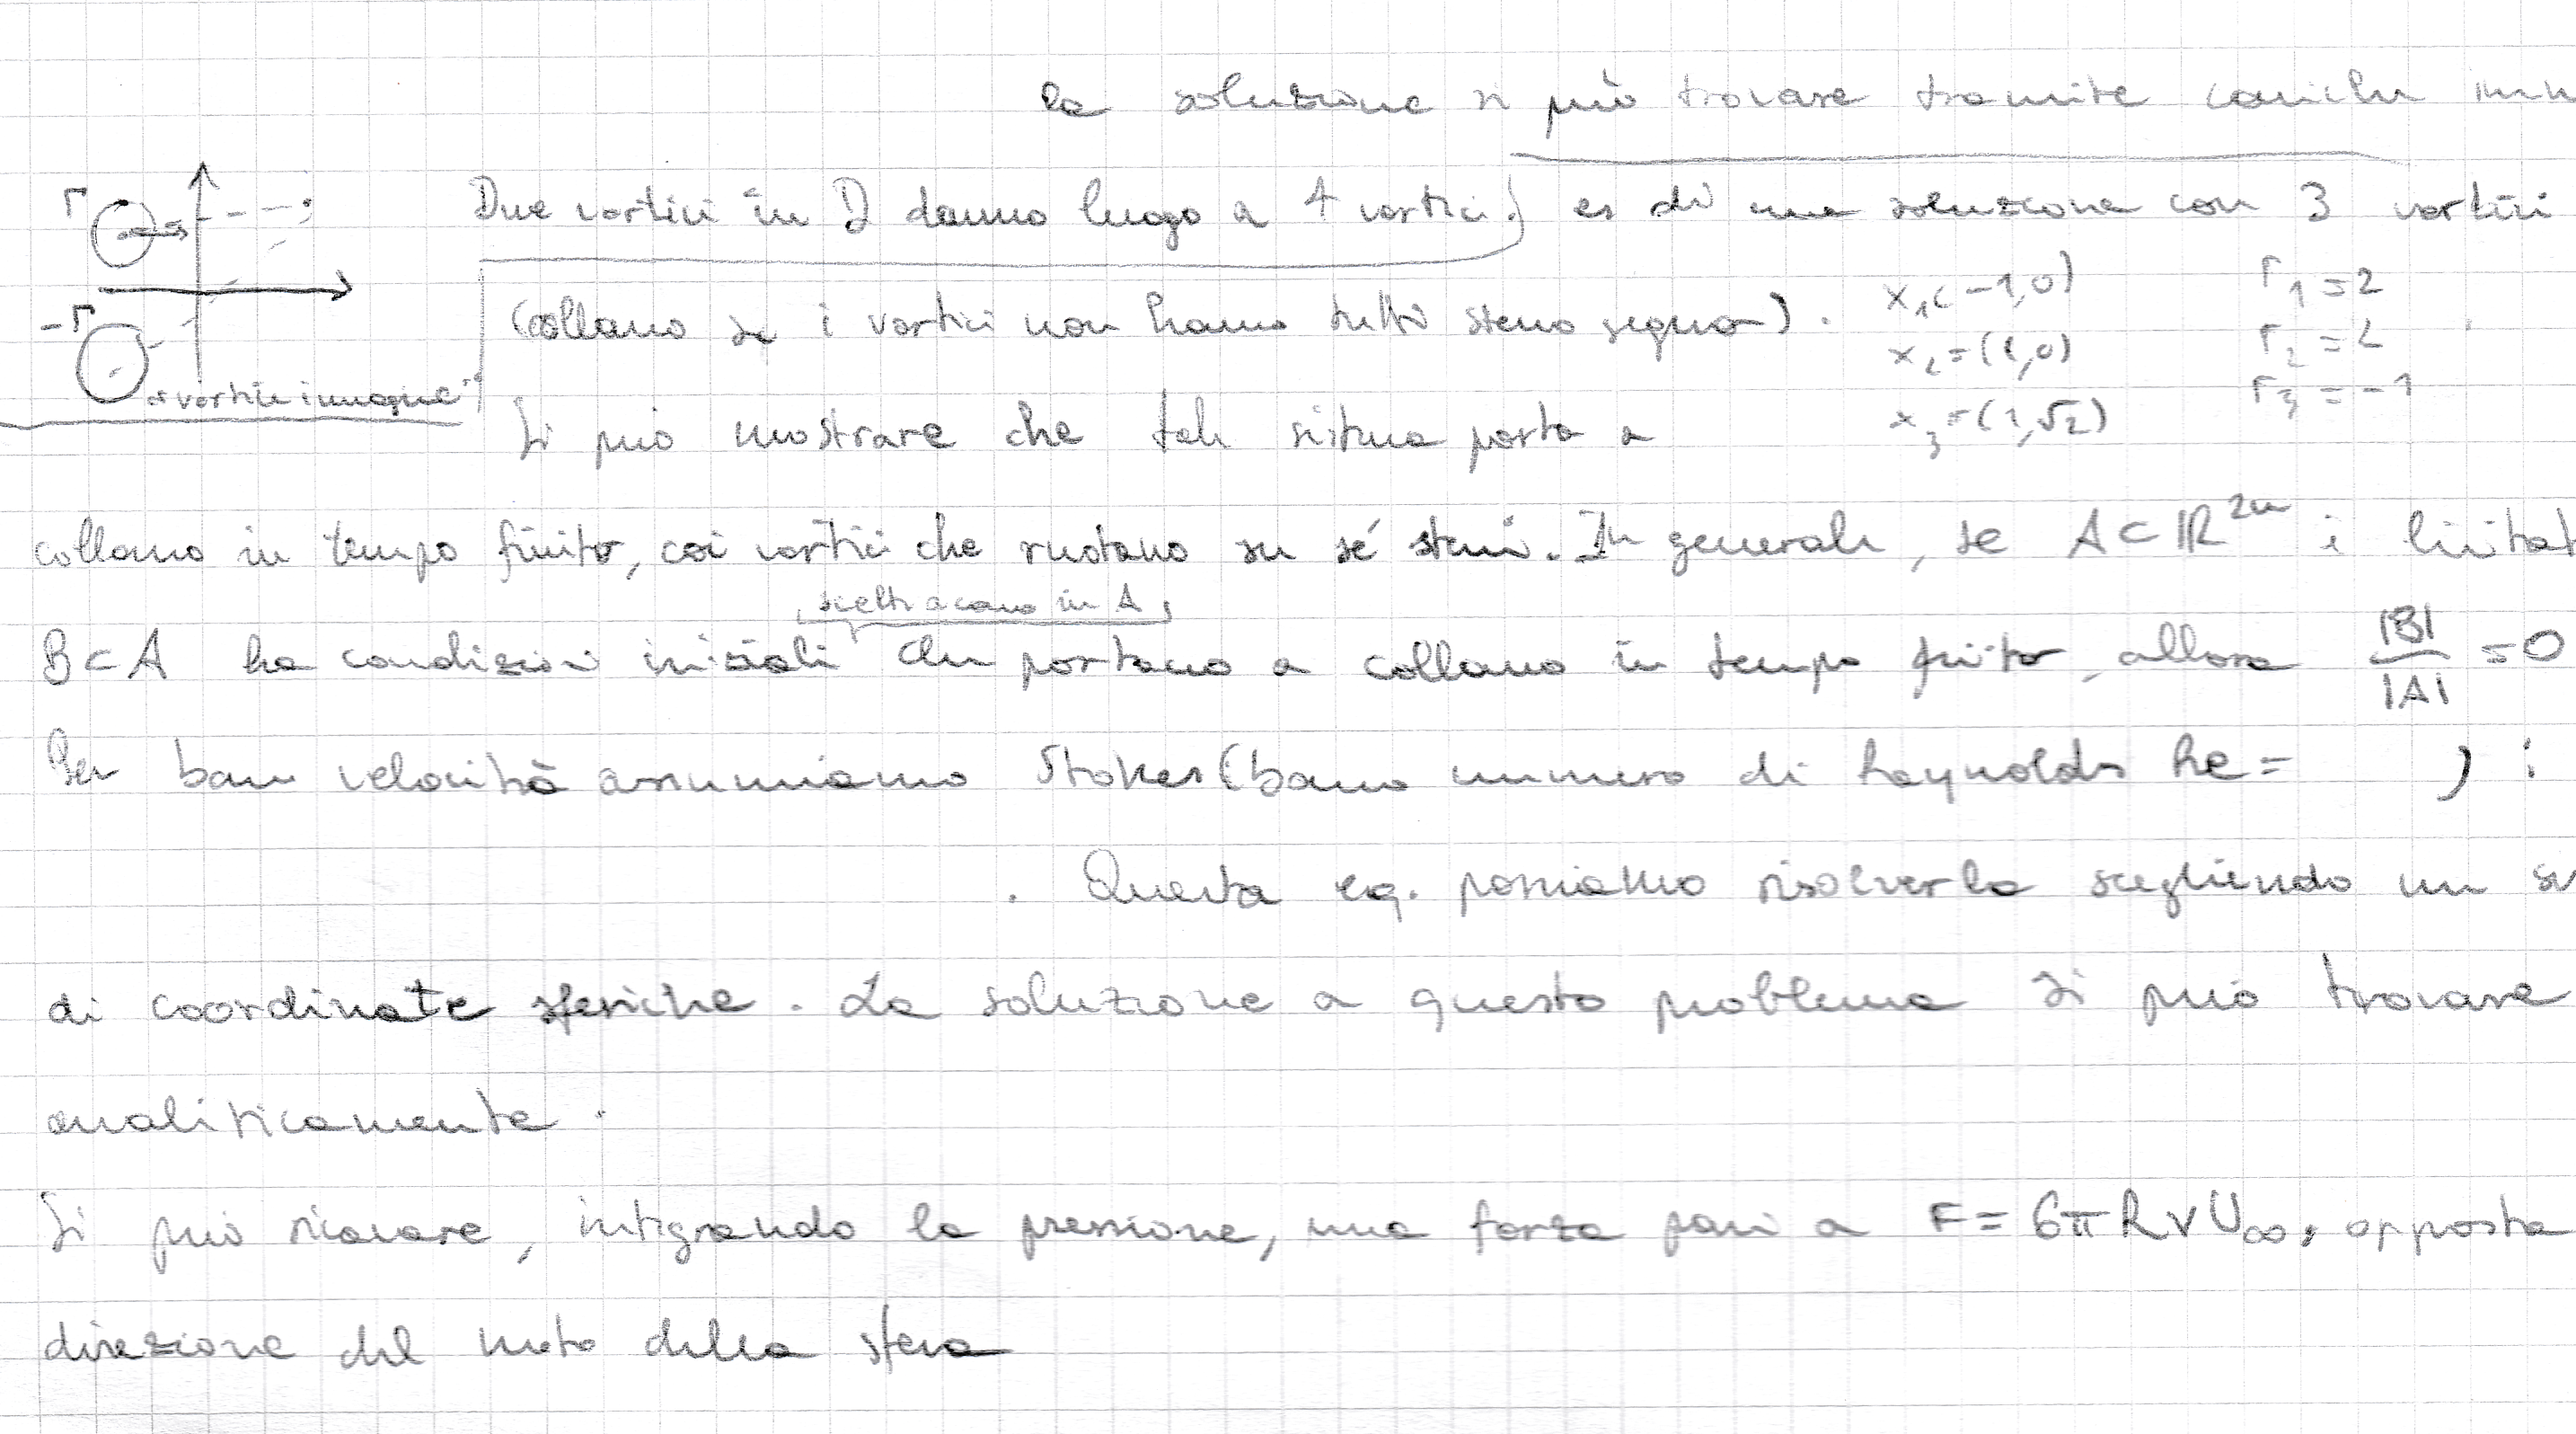 la soluzione si può trovare tramite cariche imm
Due vortici in D danno luogo a 4 vortici.) es di una soluzione con 3 vortici
Γ
-Γ
"vortice immagine"
(collasso se i vortici non hanno tutti stesso segno).
x₁(-1,0) Γ₁=2
x₂=(1,0) Γ₂=2
x₃=(1,√2) Γ₃=-1
Si può mostrare che tale sistema porta a
collasso in tempo finito, coi vortici che ruotano su sé stessi. In generale, se A⊂ℝ²ⁿ è limitat
scelti a caso in A
B⊂A ha condizioni iniziali che portano a collasso in tempo finito, allora |B|/|A| =0
Per basse velocità assumiamo Stokes (basso numero di Reynolds Re= ) :
. Questa eq. possiamo risolverla scegliendo un si
di coordinate sferiche. La soluzione a questo problema si può trovare
analiticamente.
Si può ricavare, integrando la pressione, una forza pari a F= 6πRνU∞, opposta
direzione del moto della sfera